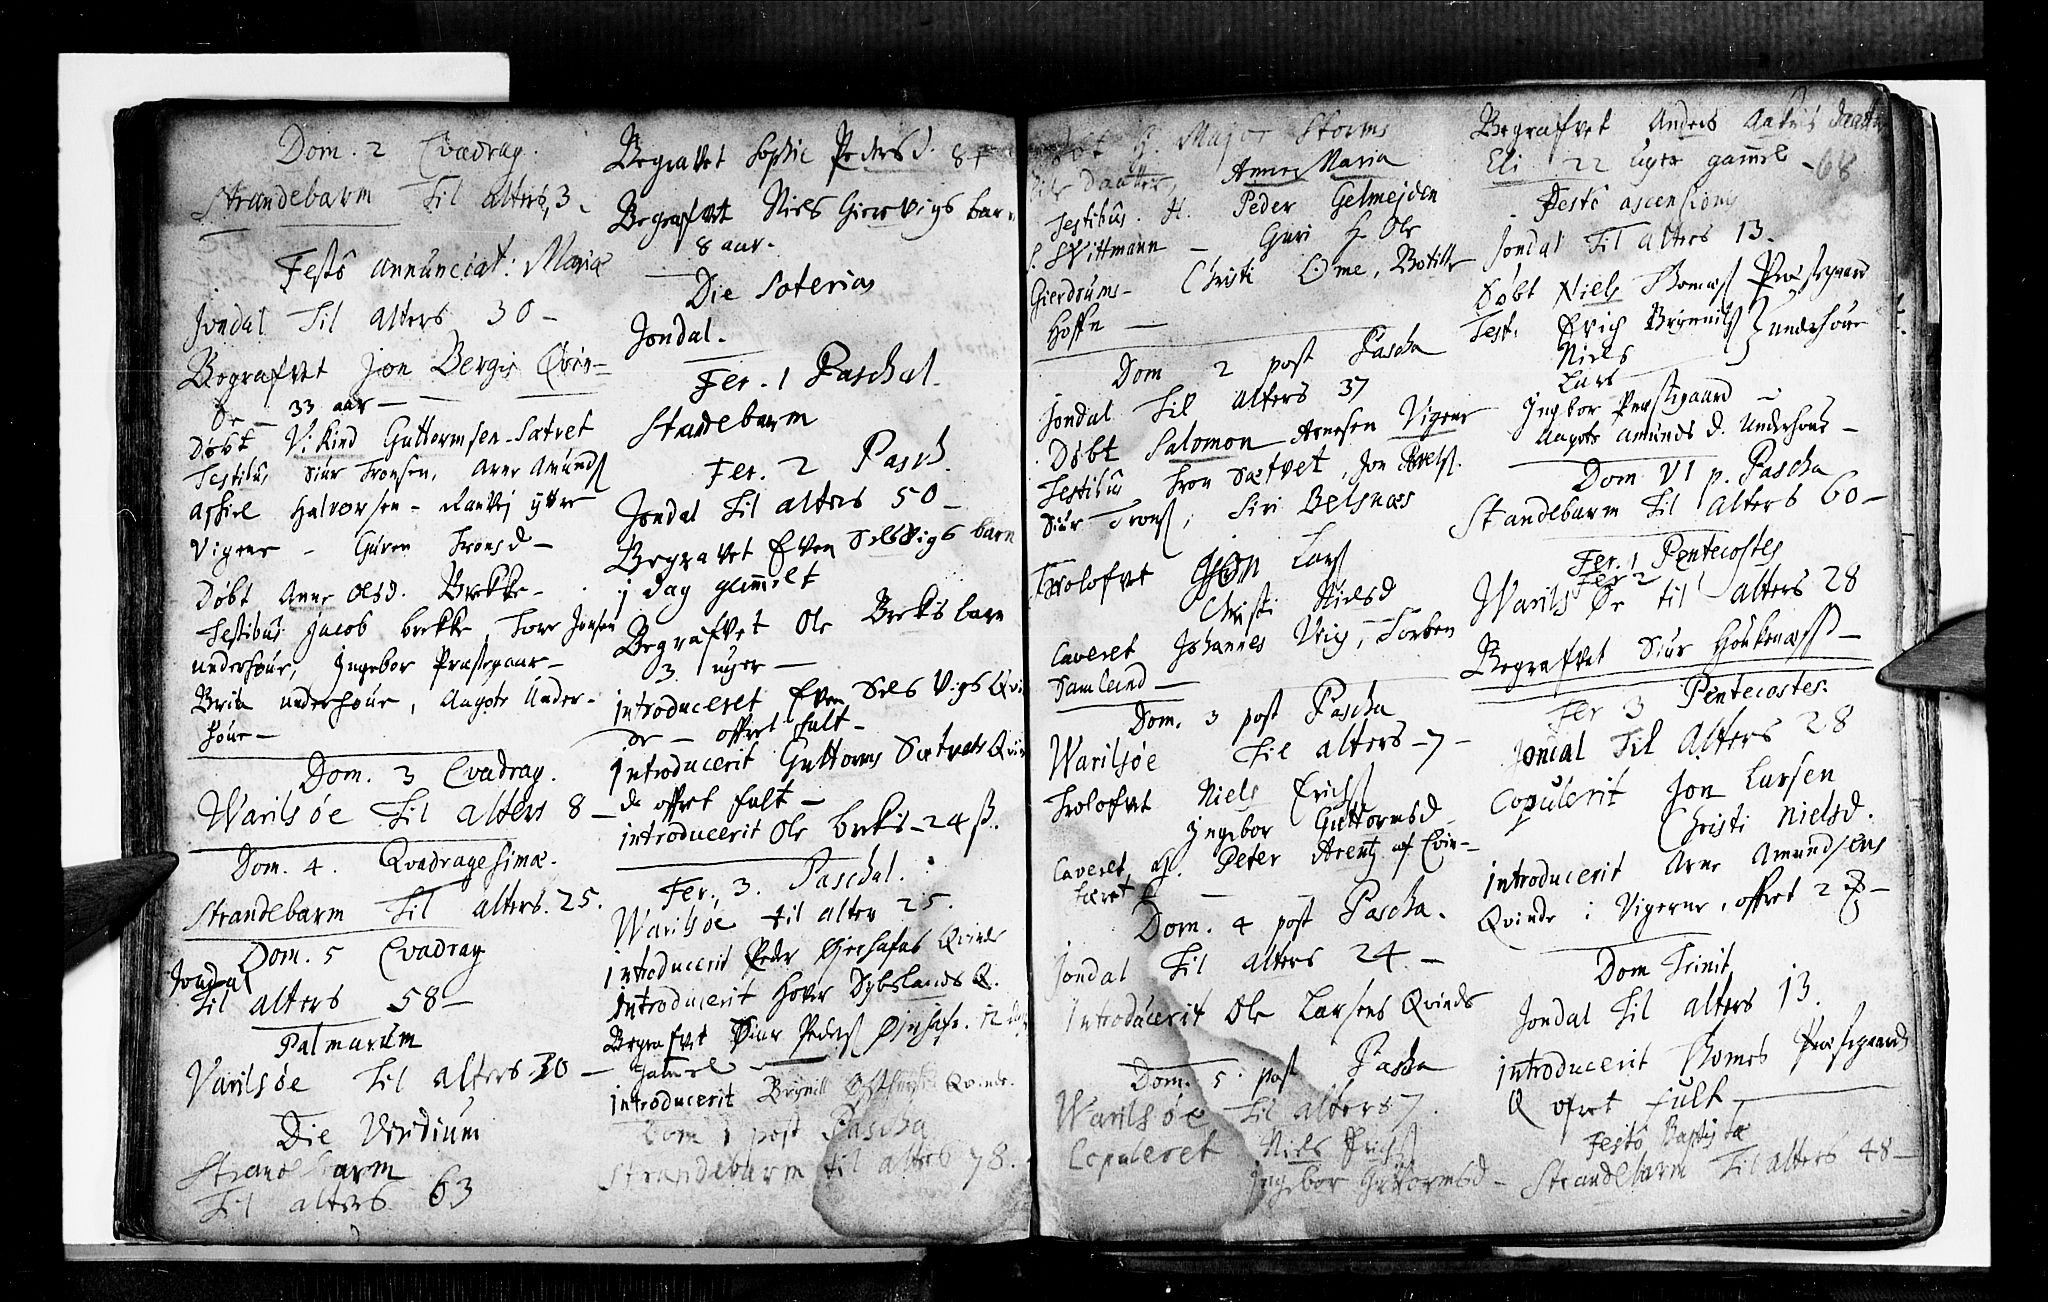 Dom. 2 Qvadrag.
Strandebarm Til alters, 3
Festo annunciat: Mariæ
Jondal Til alters 30 -
Begrafvet Jon Bergis Qvin-
de - 33 aar -
Døbt Vikind Guttormsen Sætvet
Testibus Siur Tronsen, Arne Amunds
Askiel Halvorsen - Ranvej ytre
Vigene - Guren Tronsd -
Døbt Anne Olsd. Brekke -
Testibus Jacob brekke, Tore Jonsen
underhoue, Jngebor Præstegaar -
Brita underhoue, Aagote Under-
houe -
Dom. 3 Qvadrag.
Warilsøe Til alters 8 -
Dom. 4. Qvadragesimæ.
Strandebarm Til alters. 25.
Dom. 5 Qvadrag
Jondal
Til alters 58 -
Palmarum
Varilsøe Til alters 30 -
Die Viridium
Strandebarm
Til alters 63
Begravet Sophie Pedersd. 8
Begrafvet Niels Giervigs barn
8 aar -
Die Soterias
Jondal.
Fer. 1 Paschal.
Standebarm
Fer. 2 Pasch.
Jondal Til alters 50 -
Begravet Even Selsvigs barn
j dag gammelt
Begrafvet Ole Brekis barn
3 uger -
introduceret Even Selsvigs Qvin
de - offret fult -
introducerit Guttorms Sætvets Qvin
de offret fult -
introducerit Ole brekis - 24 ß.
Fer. 3. Paschal.
Warilsøe til alter 25.
introducerit Peder Qvinde
introducerit Hover Q.
Begrafvet Siur Peders 12
gammel -
introducerit Brynild Qvinde.
Dom 1 post Pascha
Strandebarm til alters 78.
Døbt H. Major Storms
Daatter, Anne Maria
Testibus. H. Peder Gelmejden
S. Wittmann - Guri H. Ole
Gierdrums - Christi Botille
Hoffn -
Dom 2 post Pascha
Jondal Til alters 37
Døbt Salomon Arnesen Vigene
Testibus Tron Sætvet, Jon
Siur Trons, Siri Belsnæs
Trolofvet Jon Lars
Christi Nielsd
Caveret Johannes Vig, Torben
Samland -
Dom. 3 post Pascha
Warilsøe Til alters - 7 -
Trolofvet Niels Erichs
Jngebor Guttormsd
Caveret Peter Arentz af Qvin-
Dom. 4 post Pascha.
Jondal Til alters 24. -
Introducerit Ole Larsens Qvinde
Dom. 5 post Pascha
Warilsøe Til alters 7.
Copuleret Niels Erichs
Jngebor Guttormsd -
Begrafvet Anders daatter
Eli 22 uger gammel - 68
Festo ascensionis
Jondal Til alters 13.
Døbt Niels Thomas Præstegaard
Test. Erich Brynnils
Niels underhoue
Lars
Jngebor Præstegaard -
Aagote Amunds d. Underhoue -
Dom VI p. Pascha
Standebarm Til alters 60 -
Fer. 1 Pentecostes
Fer 2
Warils Øe til alters 28
Begrafvet Siur -
Fer 3 Pentecostes.
Jondal Til Alters 28
Copulerit Jon Larsen
Christi Nielsd.
introducerit Arne Amundsens
Qvinde i Vigerne, offret 2 -
Dom Trinit
Jondal Til alters 13.
introducerit Thomes Præstegaards
Q ofret fult -
Festo Baptistæ
Strandebarm Til alters 48 -